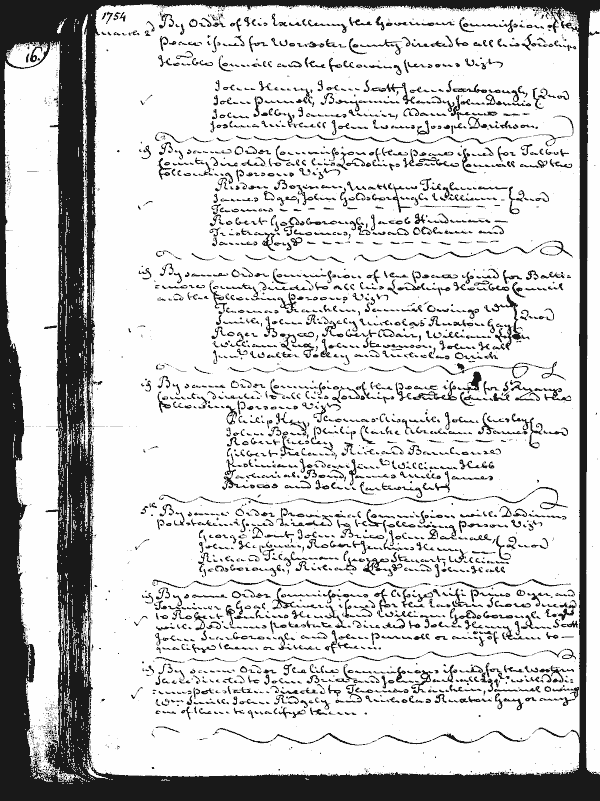 1754
16.
March 2d By Order of His Excellency the Governour Commission of the
Peace issued for Worcester County directed to all his Lordships
Honble Councill and the following persons Vizt
John Henry, John Scott, John Scarborough, Quor
John Purnell, Benjamin Handy, John Dennis
John Selby, James Muir, Adam Spence
Joshua Mitchell John Evans, Joseph Derickson.
By same Order Commission of the peace issued for Talbot
County directed to all his Lordships Honble Councill and the
following Persons Vizt
Risdon Bozman, Matthew Tilghman
James Edge, John Goldsborough William Quor
Thomas
Robert Goldsborough, Jacob Hindman
Tristrim Thomas, Edward Oldham and
James Lloyd
By same Order Commission of the Peace issued for Balti-
more County directed to all his Lordships Honble Council
and the following Persons Vizt
Thomas Franklin, Samuel Owings Wm
Smith, John Ridgely Nicholas Ruxton Gay Quor
Roger Boyce, Robert Adair, William
William John Stevenson, John Hall
Junr. Walter Tolley and Nicholas
By same Order Commission of the Peace issued for St Marys
County directed to all his Lordships Honble Council and the
following Persons Vizt
Philip Key, Thomas John Chesley
John Bond, Philip Clarke Abraham Barnes Quor
Robert Chesley
Gilbert Ireland, Richard Barnhouse
Justinian Jordan Junr. William Hebb
Zachariah Bond, James Mills James
Briscoe and John Cartwright
5th By same Order Provincial Commission with Dedimus
Potestatem issued directed to the following Person Vizt
George Dent John Brice John Darnall
John Hepburn, Robert Jenkins Henry Quor
Richard Tilghman George Steuart William
Goldsborough, Richard Lloyd and John Hall
By same Order Commissions of Assize Nisi Prius Oyer and
Terminer & Goal Delivery issued for the Eastern Shore directed
to Robert Jenkins Henry and William Goldsborough Esqrs
with Dedimus potestatem directed to John Henry John Scott
John Scarborough and John Purnell or any of them to
qualifie them or either of them.
By same Order The like Commissions issued for the Western
Shore directed to John Brice and John Darnall Esqrs. with dedi-
mus potestatem directed to Thomas Franklin, Samuel Owings
Wm. Smith John Ridgely and Nicholas Ruxton Gay or any
one of them to qualifie them.